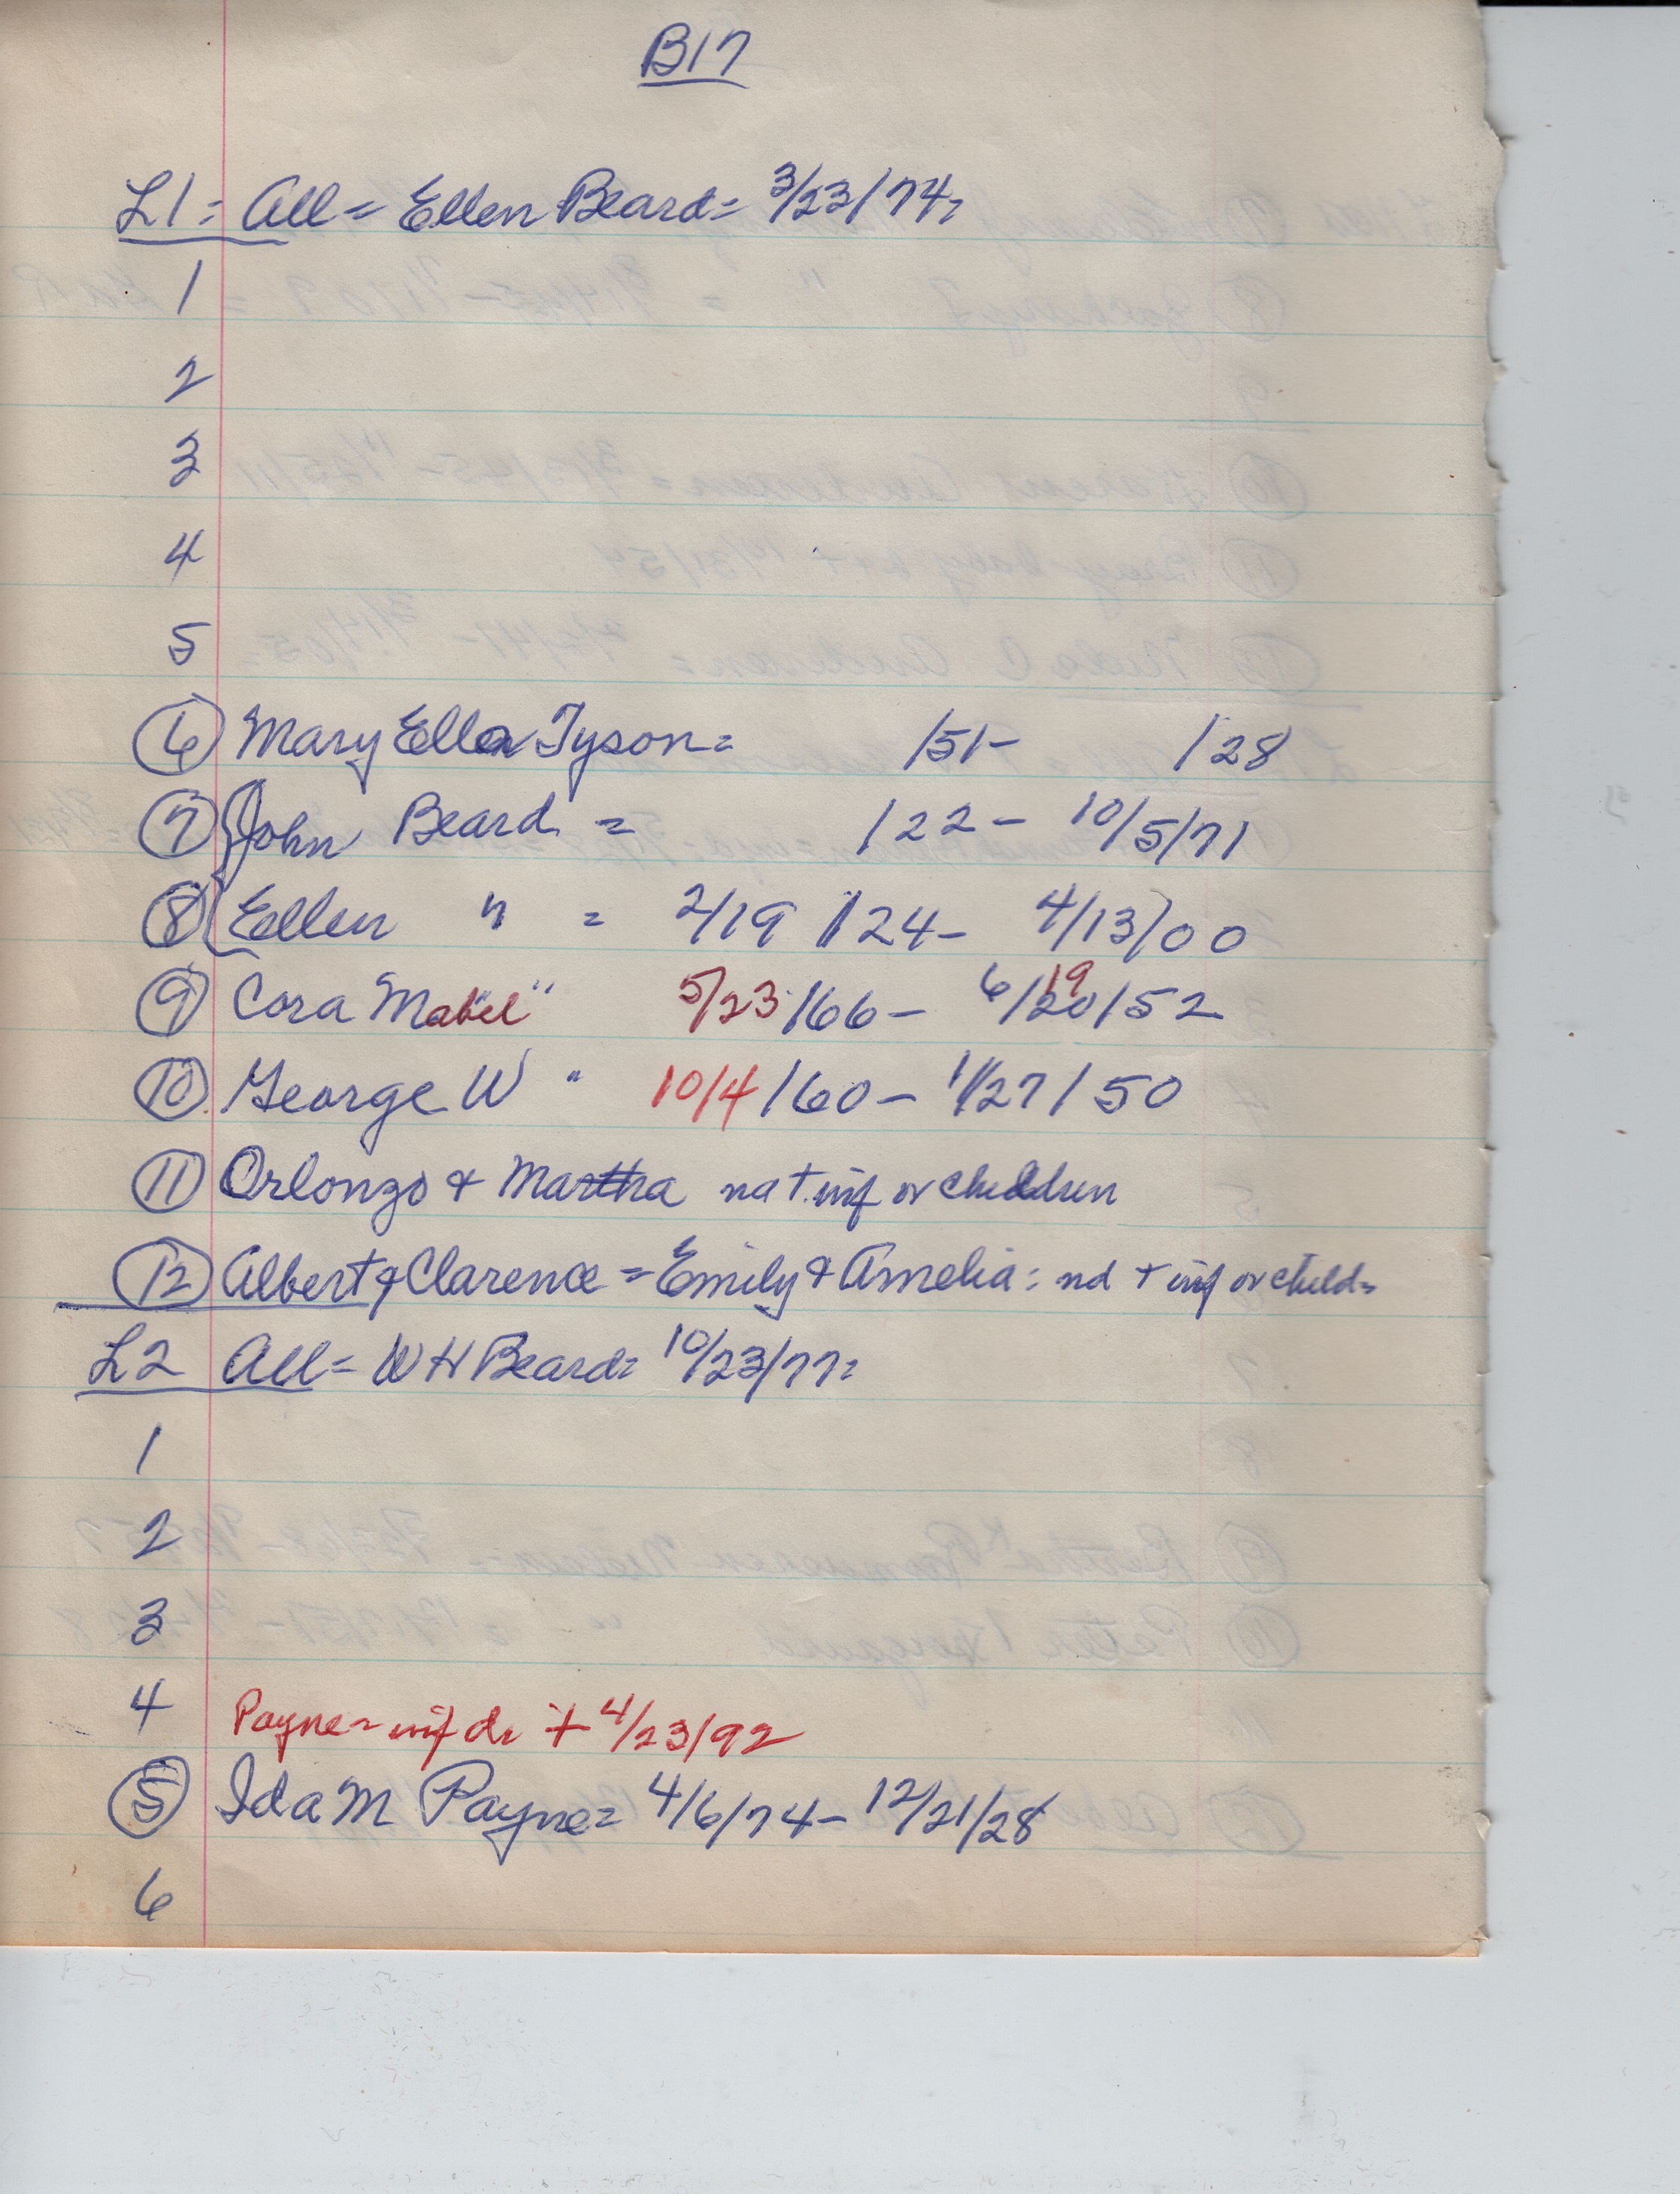 B17
L1 = All = Ellen Beard = 3/23/74 =
1
2
3
4
5
6 Mary Ella Tyson = /51 - /28
7 John Beard = /22 - 10/5/71
8 Ellen " = 2/19/24 - 4/13/00
9 Cora Mabel " 5/23/66 - 6/20/52 19
10 George W " 10/4/60 - 1/27/50
11 Orlonzo & Martha nd + inf or children
12 Albert & Clarence = Emily & Amelia : nd + inf or child =
L2 All = W H Beard = 10/23/77 =
1
2
3
4 Payne = inf da + 4/23/92
5 Ida M Payne = 4/6/74 - 12/21/28
6